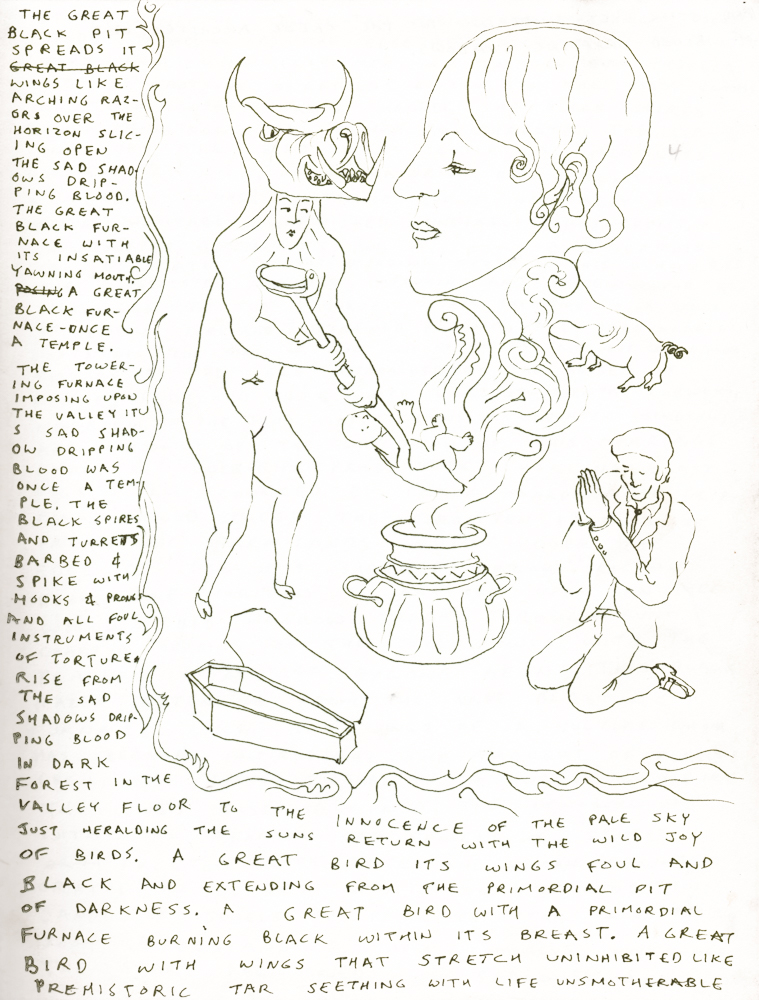 THE GREAT
BLACK PIT
SPREADS IT
GREAT BLACK
WINGS LIKE
ARCHING RAZ-
ORS OVER THE
HORIZON SLIC-
ING OPEN
THE SAD SHAD-
OWS DRIP-
PING BLOOD.
THE GREAT
BLACK FUR-
NACE WITH
ITS INSATIABLE
YAWNING MOUTH.
A GREAT
BLACK FUR-
NACE-ONCE
A TEMPLE.
THE TOWER-
ING FURNACE
IMPOSING UPON
THE VALLEY IT
S SAD SHAD-
OW DRIPPING
BLOOD WAS
ONCE A TEM-
PLE. THE
BLACK SPIRES
AND TURRETS
BARBED &
SPIKE WITH
HOOKS & PRONGS
AND ALL FOUL
INSTRUMENTS
OF TORTURE.
RISE FROM
THE SAD
SHADOWS DRIP-
PING BLOOD
IN DARK
FOREST IN THE
VALLEY FLOOR TO THE INNOCENCE OF THE PALE SKY
JUST HERALDING THE SUNS RETURN WITH THE WILD JOY
OF BIRDS. A GREAT BIRD ITS WINGS FOUL AND
BLACK AND EXTENDING FROM THE PRIMORDIAL PIT
OF DARKNESS. A GREAT BIRD WITH A PRIMORDIAL
FURNACE BURNING BLACK WITHIN ITS BREAST. A GREAT
BIRD WITH WINGS THAT STRETCH UNINHIBITED LIKE
PREHISTORIC TAR SEETHING WITH LIFE UNSMOTHERABLE
4